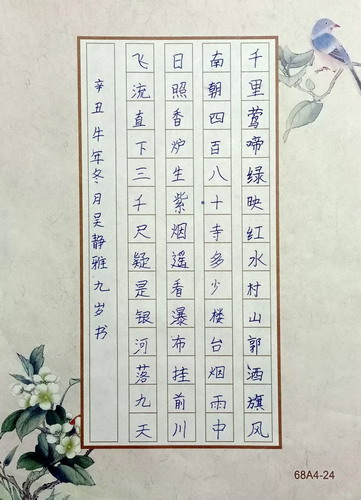 千里莺啼绿映红水村山郭酒旗风
南朝四百八十寺多少楼台烟雨中
日照香炉生紫烟遥看瀑布挂前川
飞流直下三千尺疑是银河落九天
辛丑牛年冬月吴静雅九岁书
68A4-24